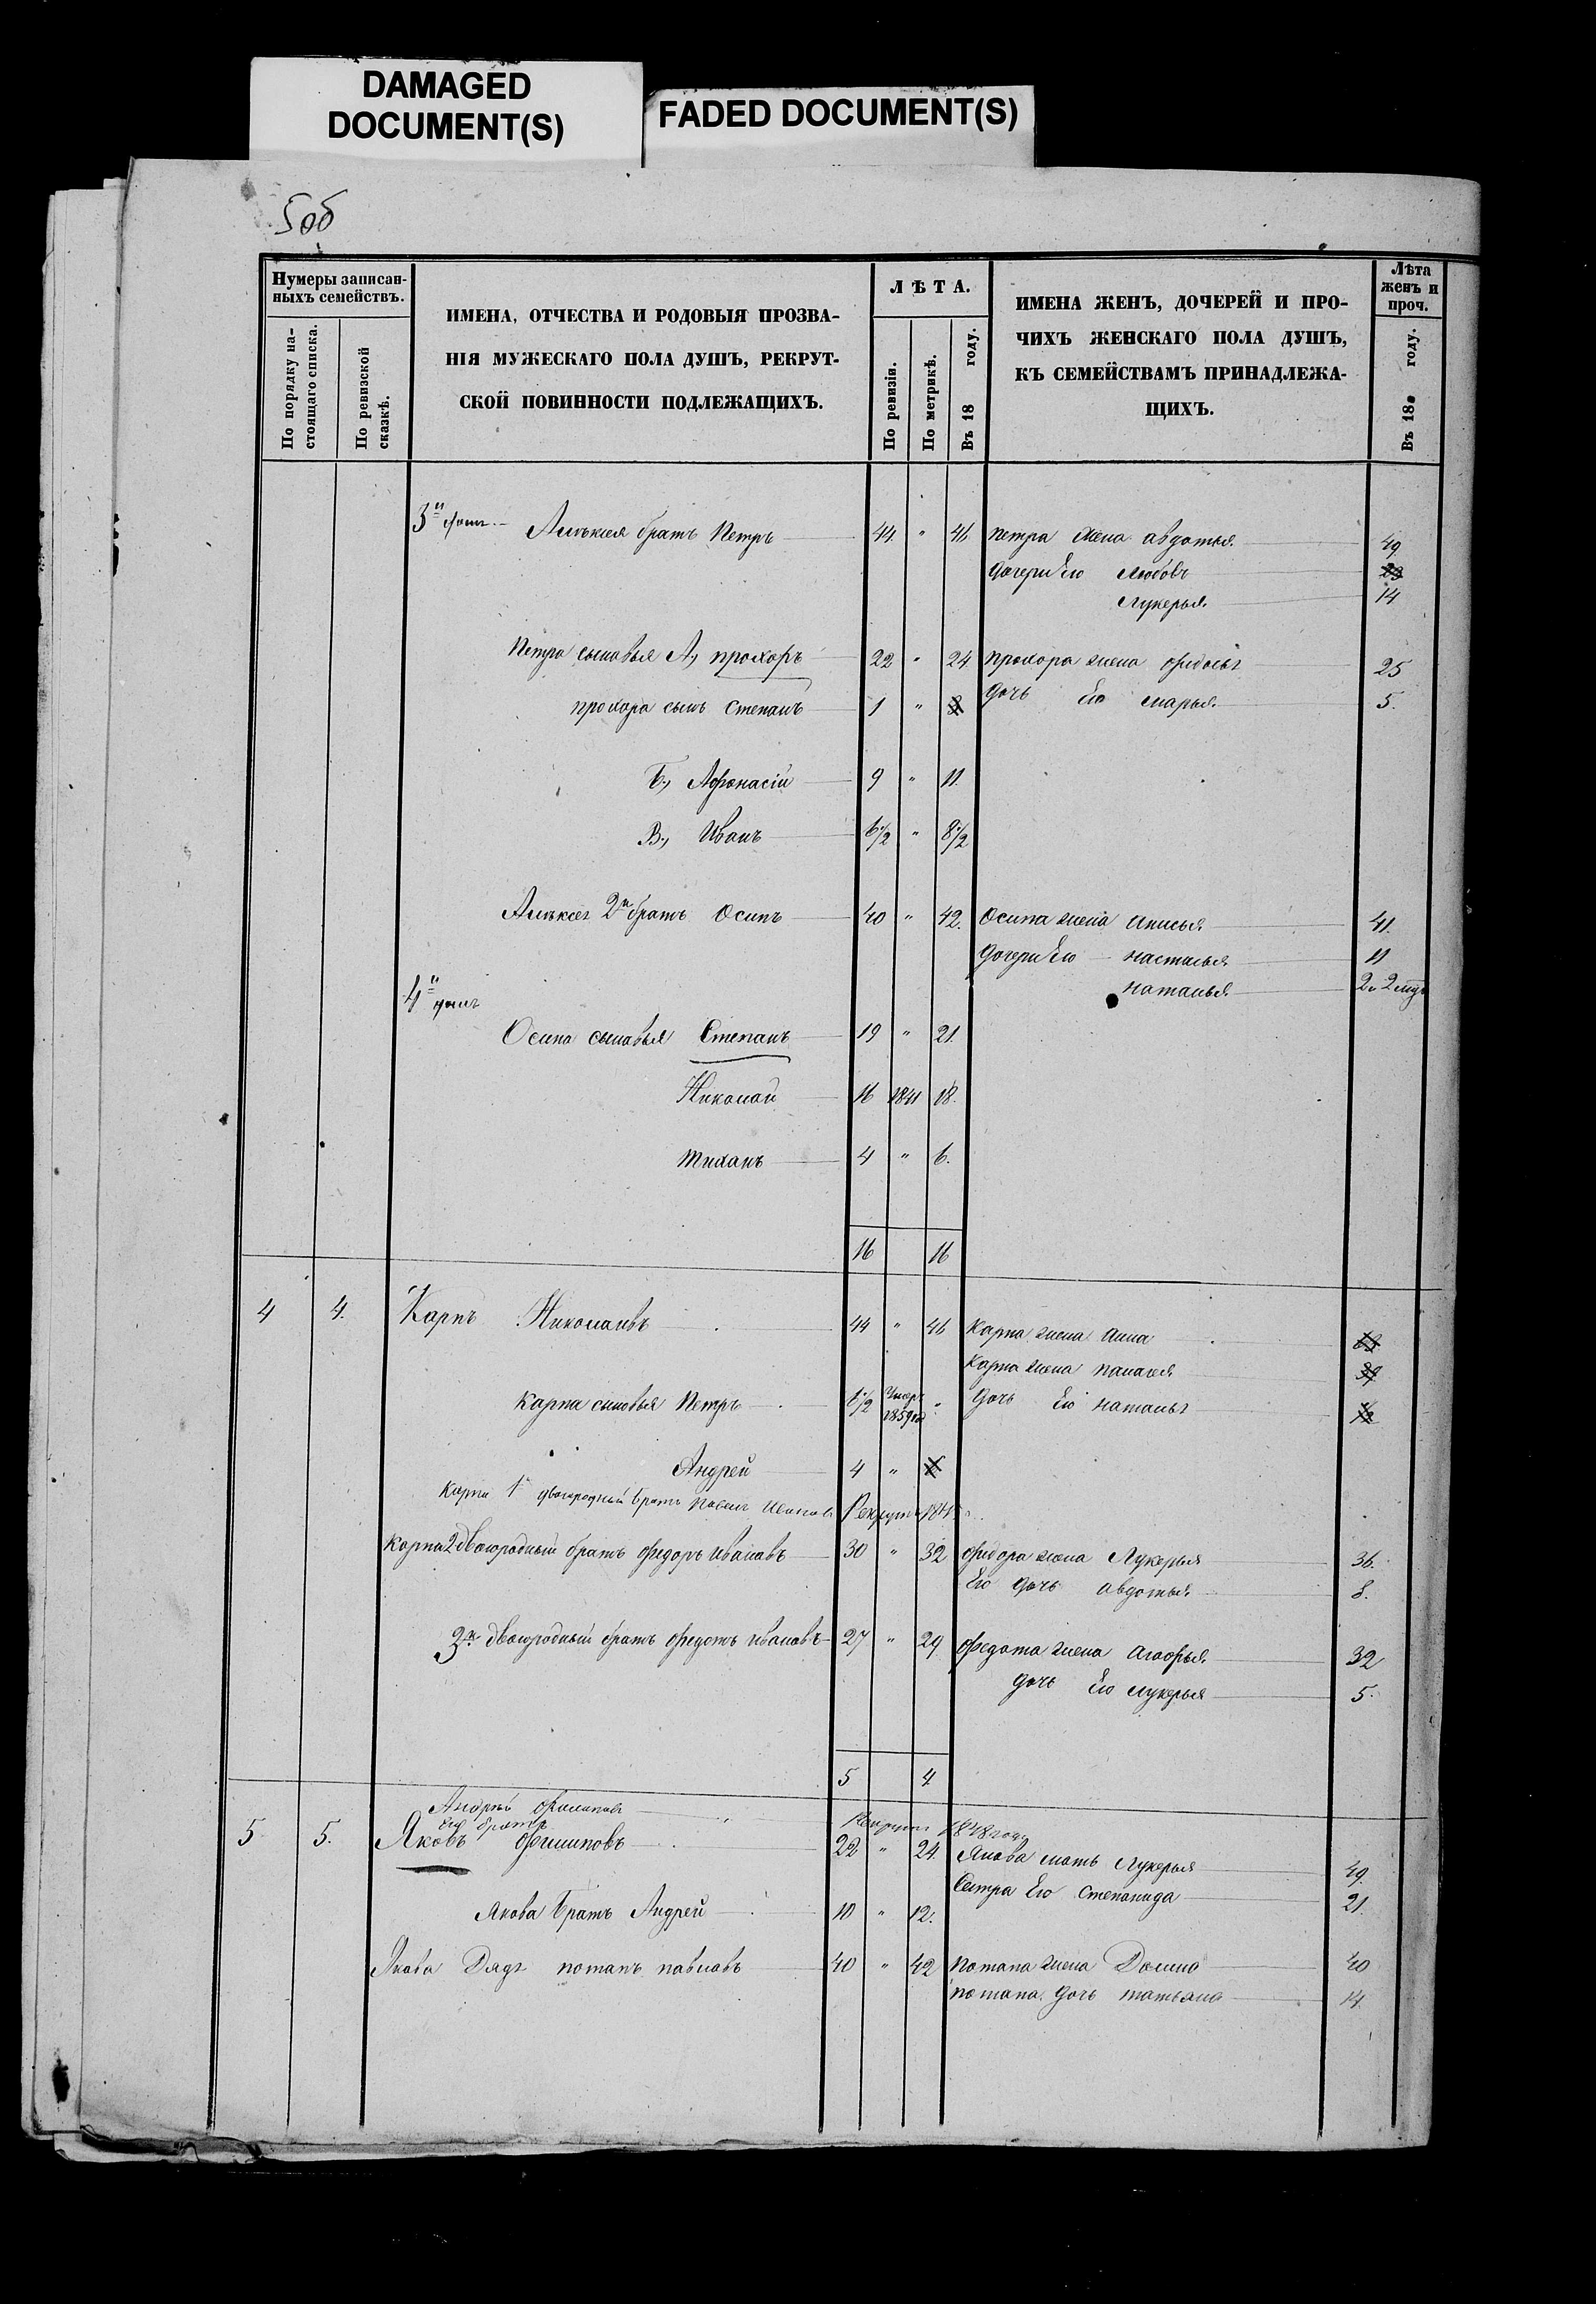 DAMAGED
DOCUMENT(S)
FADED DOCUMENT(S)
5об
Нумеры записан-
ныхъ семействъ.
По порядку на-
стоящаго списка.
По ревизской
сказкѣ.
ИМЕНА, ОТЧЕСТВА И РОДОВЫЯ ПРОЗВА-
НІЯ МУЖЕСКАГО ПОЛА ДУШЪ, РЕКРУТ-
СКОЙ ПОВИННОСТИ ПОДЛЕЖАЩИХЪ.
ЛѢТА.
По ревизіи.
По метрикѣ.
Въ 18 году.
ИМЕНА ЖЕНЪ, ДОЧЕРЕЙ И ПРО-
ЧИХЪ ЖЕНСКАГО ПОЛА ДУШЪ,
КЪ СЕМЕЙСТВАМЪ ПРИНАДЛЕЖА-
ЩИХЪ.
Лѣта
женъ и
проч.
Въ 18 году.
3й домъ Алѣксея братъ Петръ 44 " 46 петра жена авдотья 49
дочери Его Любовь
лукерья 14
Петра сыновья А, прохоръ 22 " 24 прохора жена 25
прохора сынъ Степанъ 1 " 3 дочь Его марья 5.
Б, Афонасій 9 " 11.
В, Иванъ 6½ " 8½
2й братъ Осипъ 40 " 42. Осипа жена 41.
дочери Его настасья 11
4й домъ наталья
Осипа сыновья Степанъ 19 " 21.
Николай 16 1841 18.
Тиханъ 4 " 6.
16 16
4 4. Карпъ Николаевъ 44 " 46 Карпа жена анна
Карпа жена палагея
Карпа сыновья Петръ 6½ Умеръ 1859 " дочь Его
Андрей 4 " 6
Карпа 1й двоюродный братъ Иванов Рекрутъ
Карпа 2 двоюродный братъ федоръ ивановъ 30 " 32 федора жена Лукерья 36.
Его дочь авдотья 8.
3й двоюродный братъ федотъ ивановъ 27 " 29 федота жена 32
дочь Его лукерья 5.
5 4
Андрей Филипов
Его братъ 1848 году
5 5. Яковъ филиповъ 22 " 24. Якова мать лукерья 49.
Сестра Его степанида 21.
Якова братъ Андрей 10 " 12.
Якова Дядя потапъ павловъ 40 " 42 потапа жена Домна 40
потапа дочь татьяна 14.